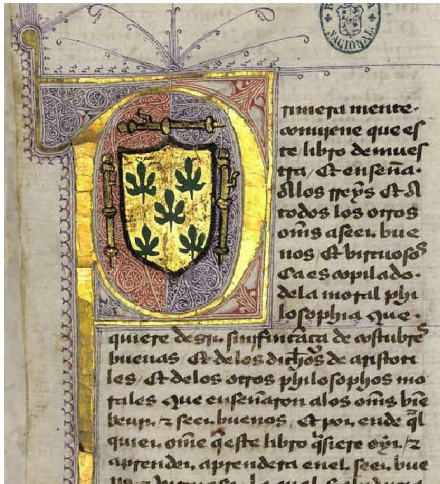 Primera mente.
conujene que es
te libro demues
tra / Et enseña.
Alos rreys Et A
todos los otros
oms aseer. bue
nos / Et birtuosos
Ca es copilado.
dela moral phi
losophia que.
quiere desir. sinificança de costubres
buenas / Et delos dichos de aristoti
les / Et delos otros philosophos mo
rales que enseñaron alos oms bie
beujr. / z seer. buenos / Et por. ende ql
quier. ome q este libro qsiere oyr. / z
aprender. aprendera enel. seer. bue